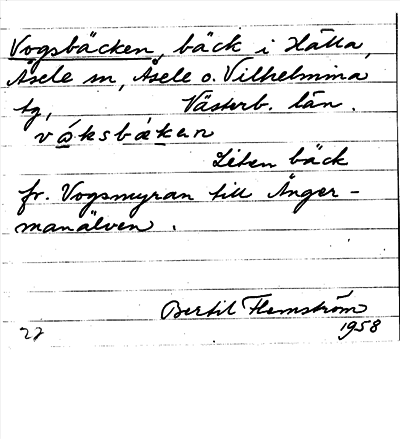 Vogsbäcken, bäck i Hälla,
Åsele sn, Åsele o. Vilhelmina
tg, Västerb. län.
våksbäken
Liten bäck
fr. Vogsmyran till Ånger-
manälven.
Bertil Flemström
22 1958